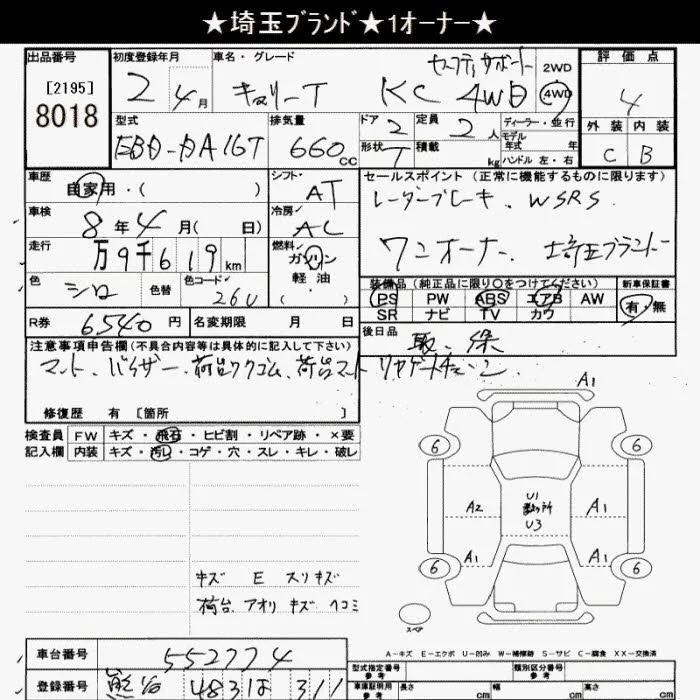 ★埼玉ブランド★1オーナー★
出品番号
[2195]
8018
初度登録年月
2 4月
車名・グレード
キャリーT KC 4WD
セーフティサポート
2WD
4WD
評価点
4
外装 内装
C B
型式
EBD-DA16T
排気量
660cc
ドア 2
形状 T
定員 2人
積載 kg
ディーラー・並行
モデル
年式 年
ハンドル 左・右
車歴
自家用・( )
シフト
AT
車検
8年4月( 日)
冷房
AC
走行
万9千619km
燃料
ガソリン
軽油
( )
色
シロ
色替
色コード
26U
R券
6540円
名変期限 月 日
セールスポイント(正常に機能するものに限ります)
レーダーブレーキ、WSRS
ワンオーナー、埼玉ブランド
装備品(純正品に限り○をつけてください)
PS PW ABS エアB AW
SR ナビ TV カワ
新車保証書
有・無
後日品
取、保
注意事項申告欄(不具合内容等は具体的に記入して下さい)
マット、バイザー、荷台ワクゴム、荷台マット リヤゲートチェーン2
修復歴 有 [箇所 ]
検査員
記入欄
FW キズ・飛石・ヒビ割・リペア跡・×要
内装 キズ・汚レ・コゲ・穴・スレ・キレ・破レ
キズ E スリキズ
荷台 アオリ キズ ヘコミ
A1
6 6
A2
U1
数ヶ所
U3
A1
A1 A1
6 6
スペア
A-キズ E-エクボ U-凹み W-補修跡 S-サビ C-腐食 XX-交換済
車台番号 552774
登録番号 熊谷 483 は 311
型式指定番号
参考
類別区分番号
参考
車庫証明用
参考
長さ cm 幅 cm 高さ cm